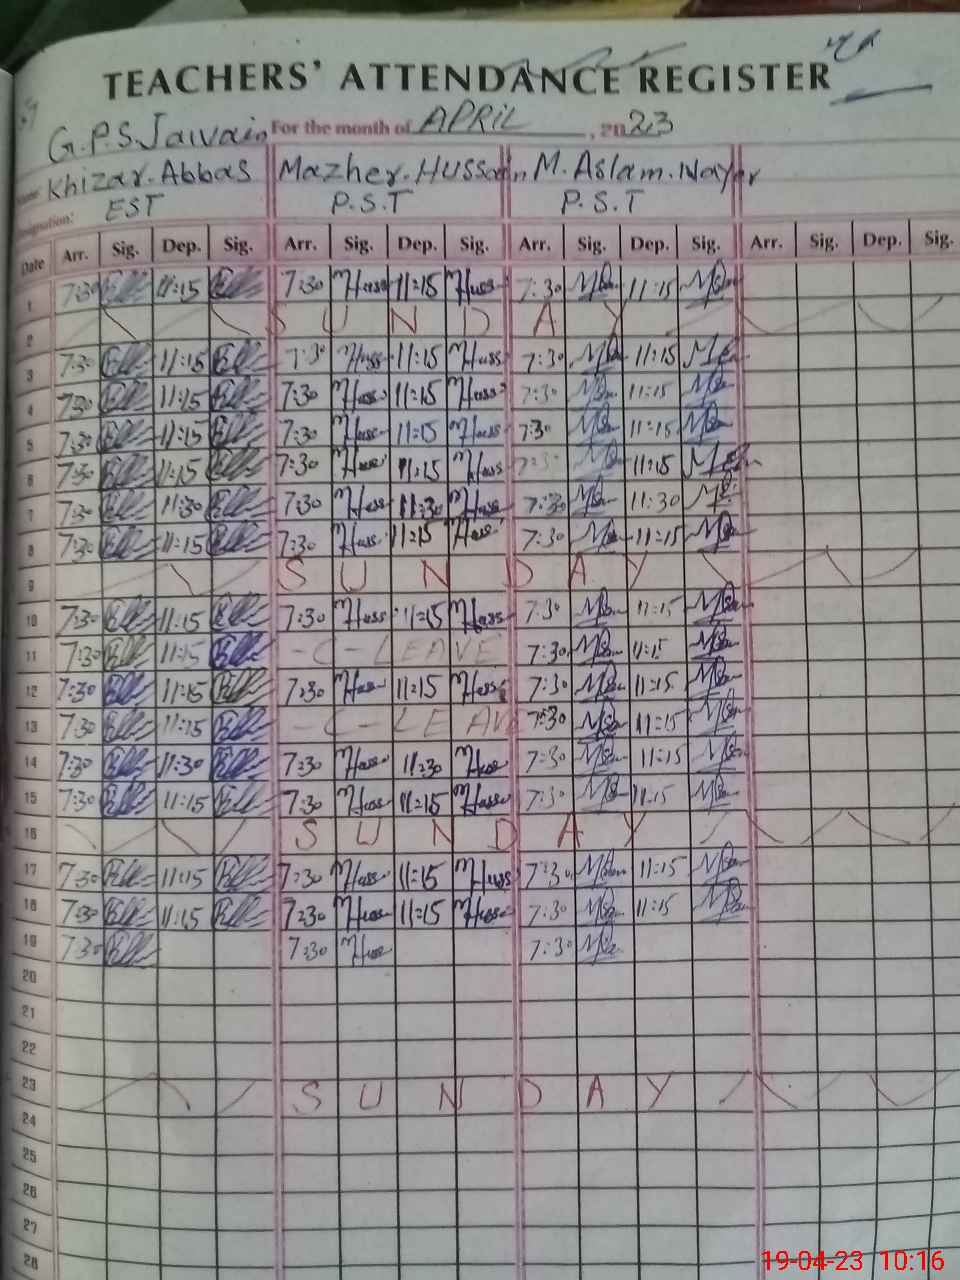 TEACHERS' ATTENDANCE REGISTER
G.P.S. Jawain For the month of APRIL, 2023
Khizar.Abbas Mazher.Hussain M.Aslam.Nayer
Designation: EST P.S.T P.S.T
Date Arr. Sig. Dep. Sig. Arr. Sig. Dep. Sig. Arr. Sig. Dep. Sig. Arr. Sig. Dep. Sig.
1 7:30 11:15 7:30 Huss 11:15 Huss 7:30 11:15
2 SUNDAY
3 7:30 11:15 7:30 Huss 11:15 Huss 7:30 11:15
4 7:30 11:15 7:30 Huss 11:15 Huss 7:30 11:15
5 7:30 11:15 7:30 Huss 11:15 Huss 7:30 11:15
6 7:30 11:15 7:30 Huss 11:15 Huss 7:30 11:15
7 7:30 11:30 7:30 Huss 11:30 Huss 7:30 11:30
8 7:30 11:15 7:30 Huss 11:15 Huss 7:30 11:15
9 SUNDAY
10 7:30 11:15 7:30 Huss 11:15 Huss 7:30 11:15
11 7:30 11:15 -C-LEAVE 7:30 11:15
12 7:30 11:15 7:30 Huss 11:15 Huss 7:30 11:15
13 7:30 11:15 -C-LEAVE 7:30 11:15
14 7:30 11:30 7:30 Huss 11:30 Huss 7:30 11:15
15 7:30 11:15 7:30 Huss 11:15 Huss 7:30 11:15
16 SUNDAY
17 7:30 11:15 7:30 Huss 11:15 Huss 7:30 11:15
18 7:30 11:15 7:30 Huss 11:15 Huss 7:30 11:15
19 7:30 7:30 Huss 7:30
20
21
22
23 SUNDAY
24
25
26
27
28
19-04-23 10:16